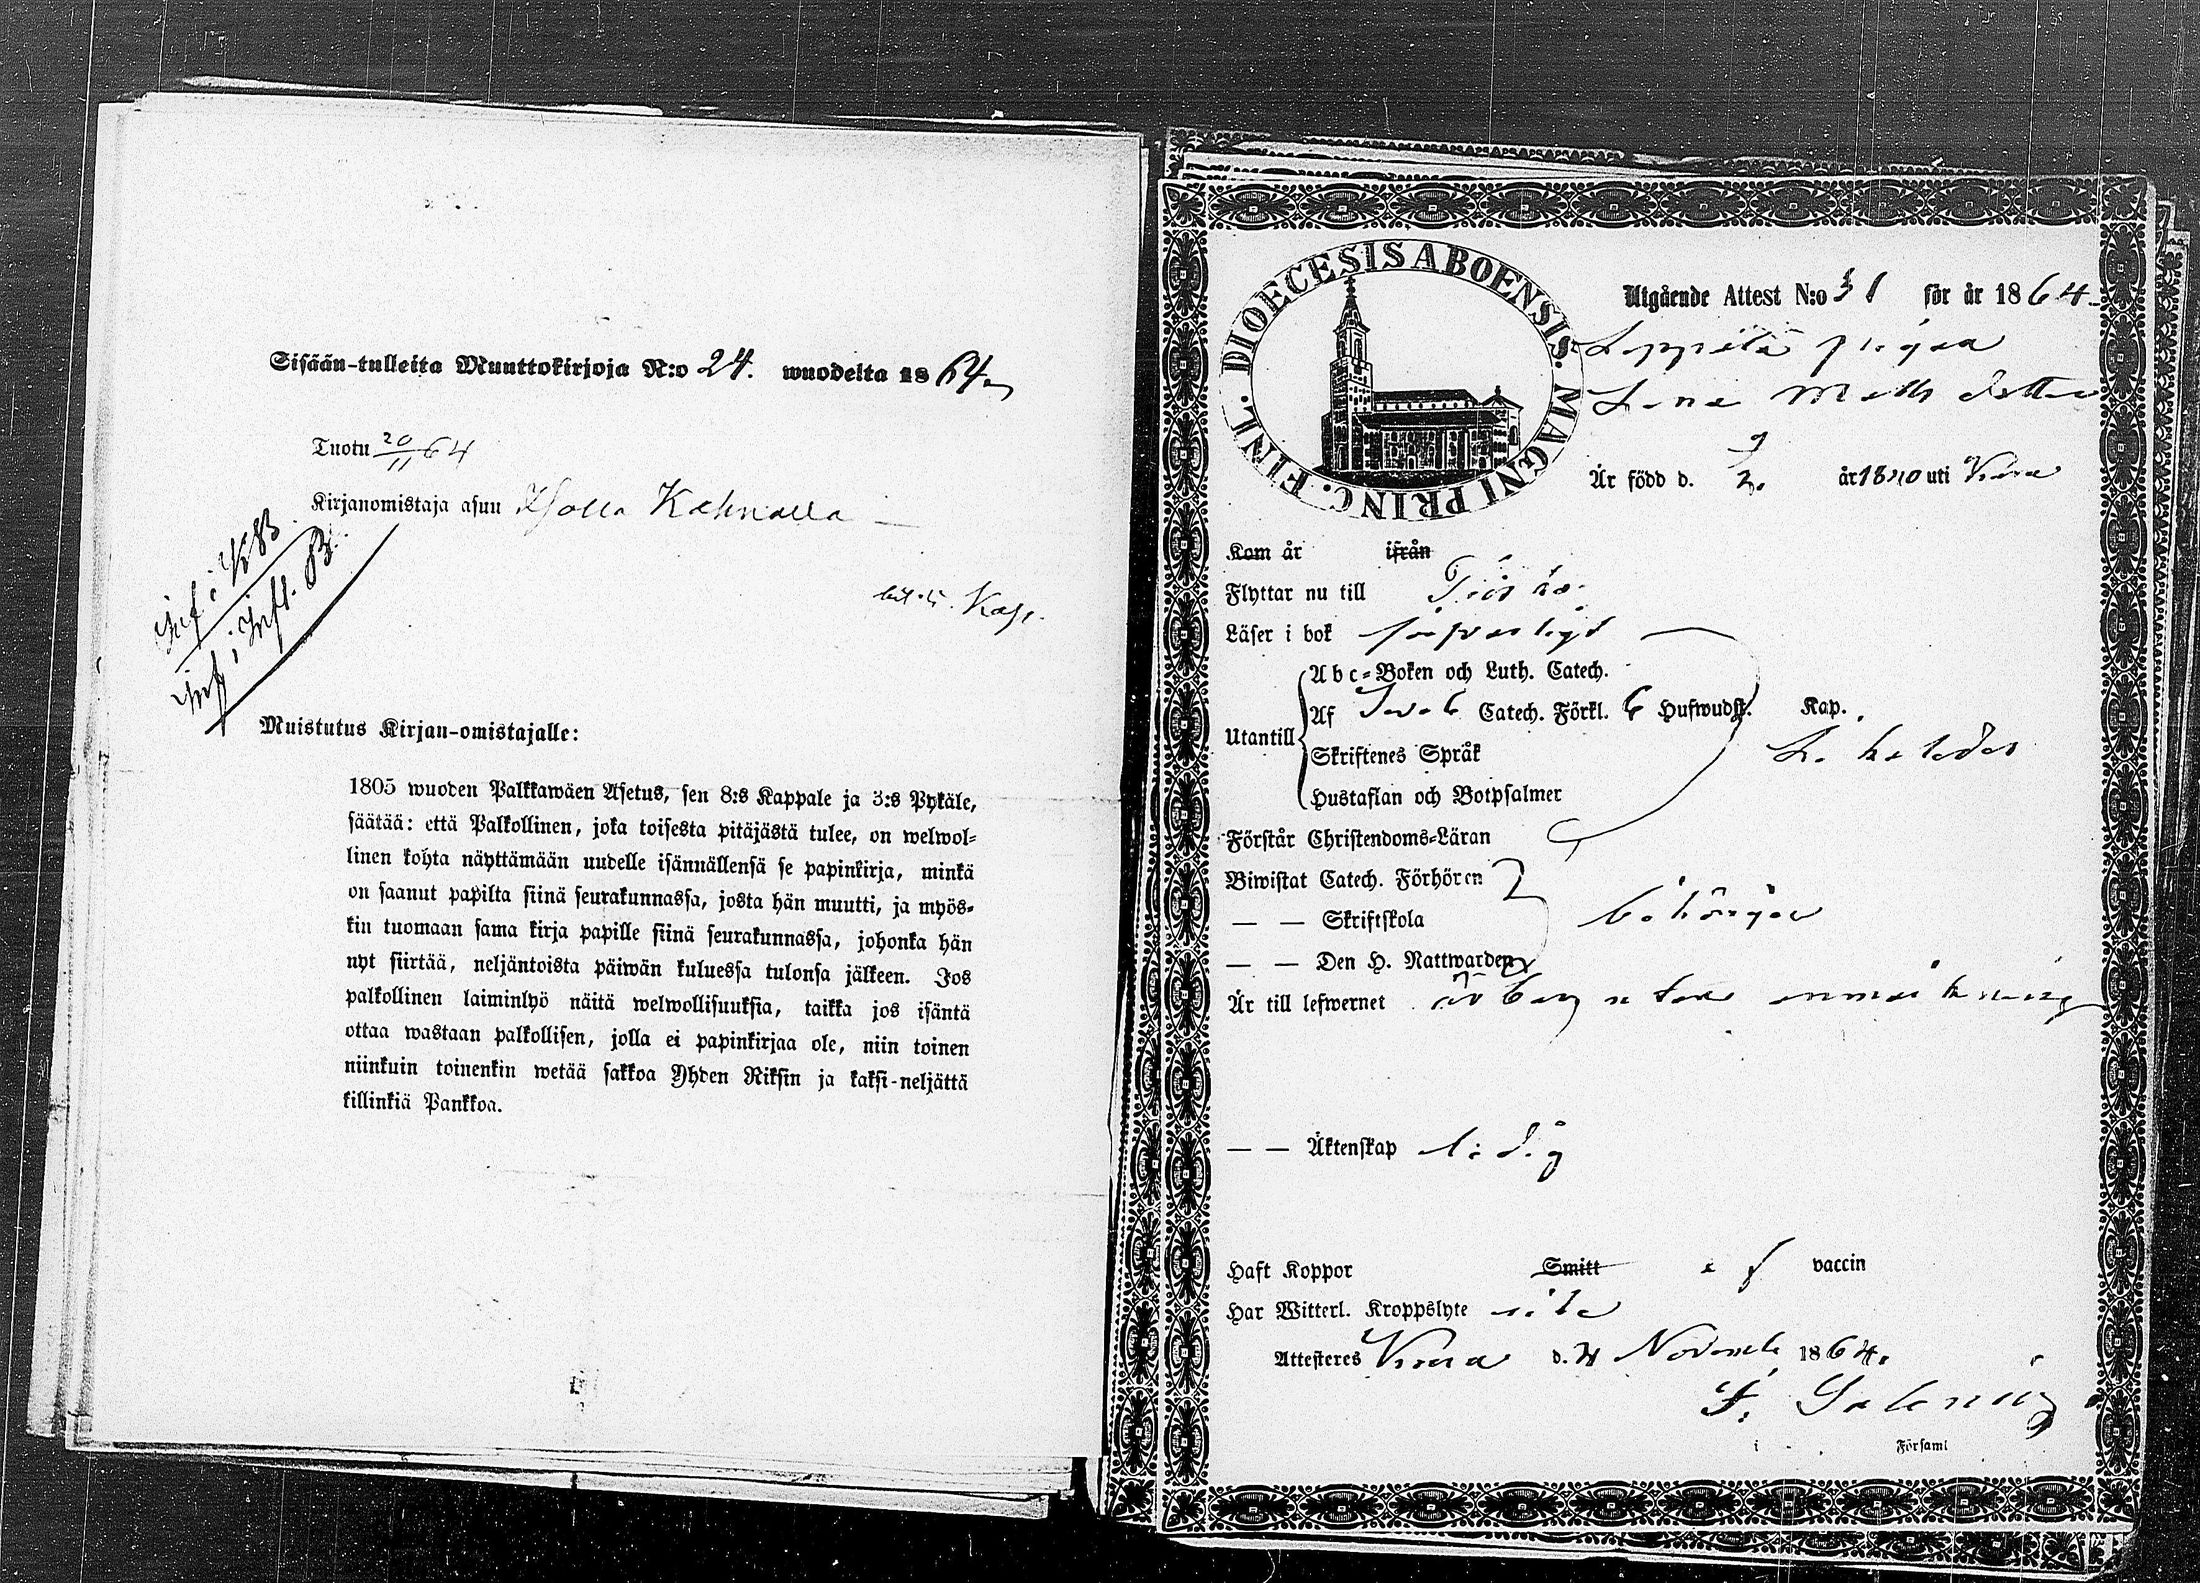 Sisään-tulleita Muuttokirjoja N:o 24. wuodelta 1864
Tuotu 20/11 64
Kirjanomistaja asuu Isolla Kahnalla
Inf i KB.
Inf i Infl. B.
Kap.
Muistutus Kirjan-omistajalle:
1805 wuoden Palkkawäen Asetus, sen 8:s Kappale ja 3:s Pykäle,
säätää: että Palkollinen, joka toisesta pitäjästä tulee, on welwol=
linen kohta näyttämään uudelle isännällensä se papinkirja, minkä
on saanut papilta siinä seurakunnassa, josta hän muutti, ja myös=
kin tuomaan sama kirja papille siinä seurakunnassa, johonka hän
nyt siirtää, neljäntoista päiwän kuluessa tulonsa jälkeen. Jos
palkollinen laiminlyö näitä welwollisuuksia, taikka jos isäntä
ottaa wastaan palkollisen, jolla ei papinkirjaa ole, niin toinen
niinkuin toinenkin wetää sakkoa Yhden Riksin ja kaksi-neljättä
killinkiä Pankkoa.
DIOECESIS ABOENSIS. MAGNI PRINC. FINL.
Utgående Attest N:o 31 för år 1864
pigan
Lena Matts dotter
Är född d. år 1840 uti Kiura
Kom år ifrån
Flyttar nu till
Läser i bok försvarligt
Abc=Boken och Luth. Catech.
Af Catech. Förkl. 6 Hufwudst. Kap.
Utantill
Skriftenes Språk
Hustaflan och Botpsalmer
Förstår Christendoms=Läran
Biwistat Catech. Förhören
— — Skriftskola behörigen
— — Den H. Nattwarden
Är till lefwernet utan anmärkning
— — Äktenskap ledig
Haft Koppor Smitt af vaccin
Har Witterl. Kroppslyte icke
Attesteres d. 4 November 1864.
F. Salenius
i Församl